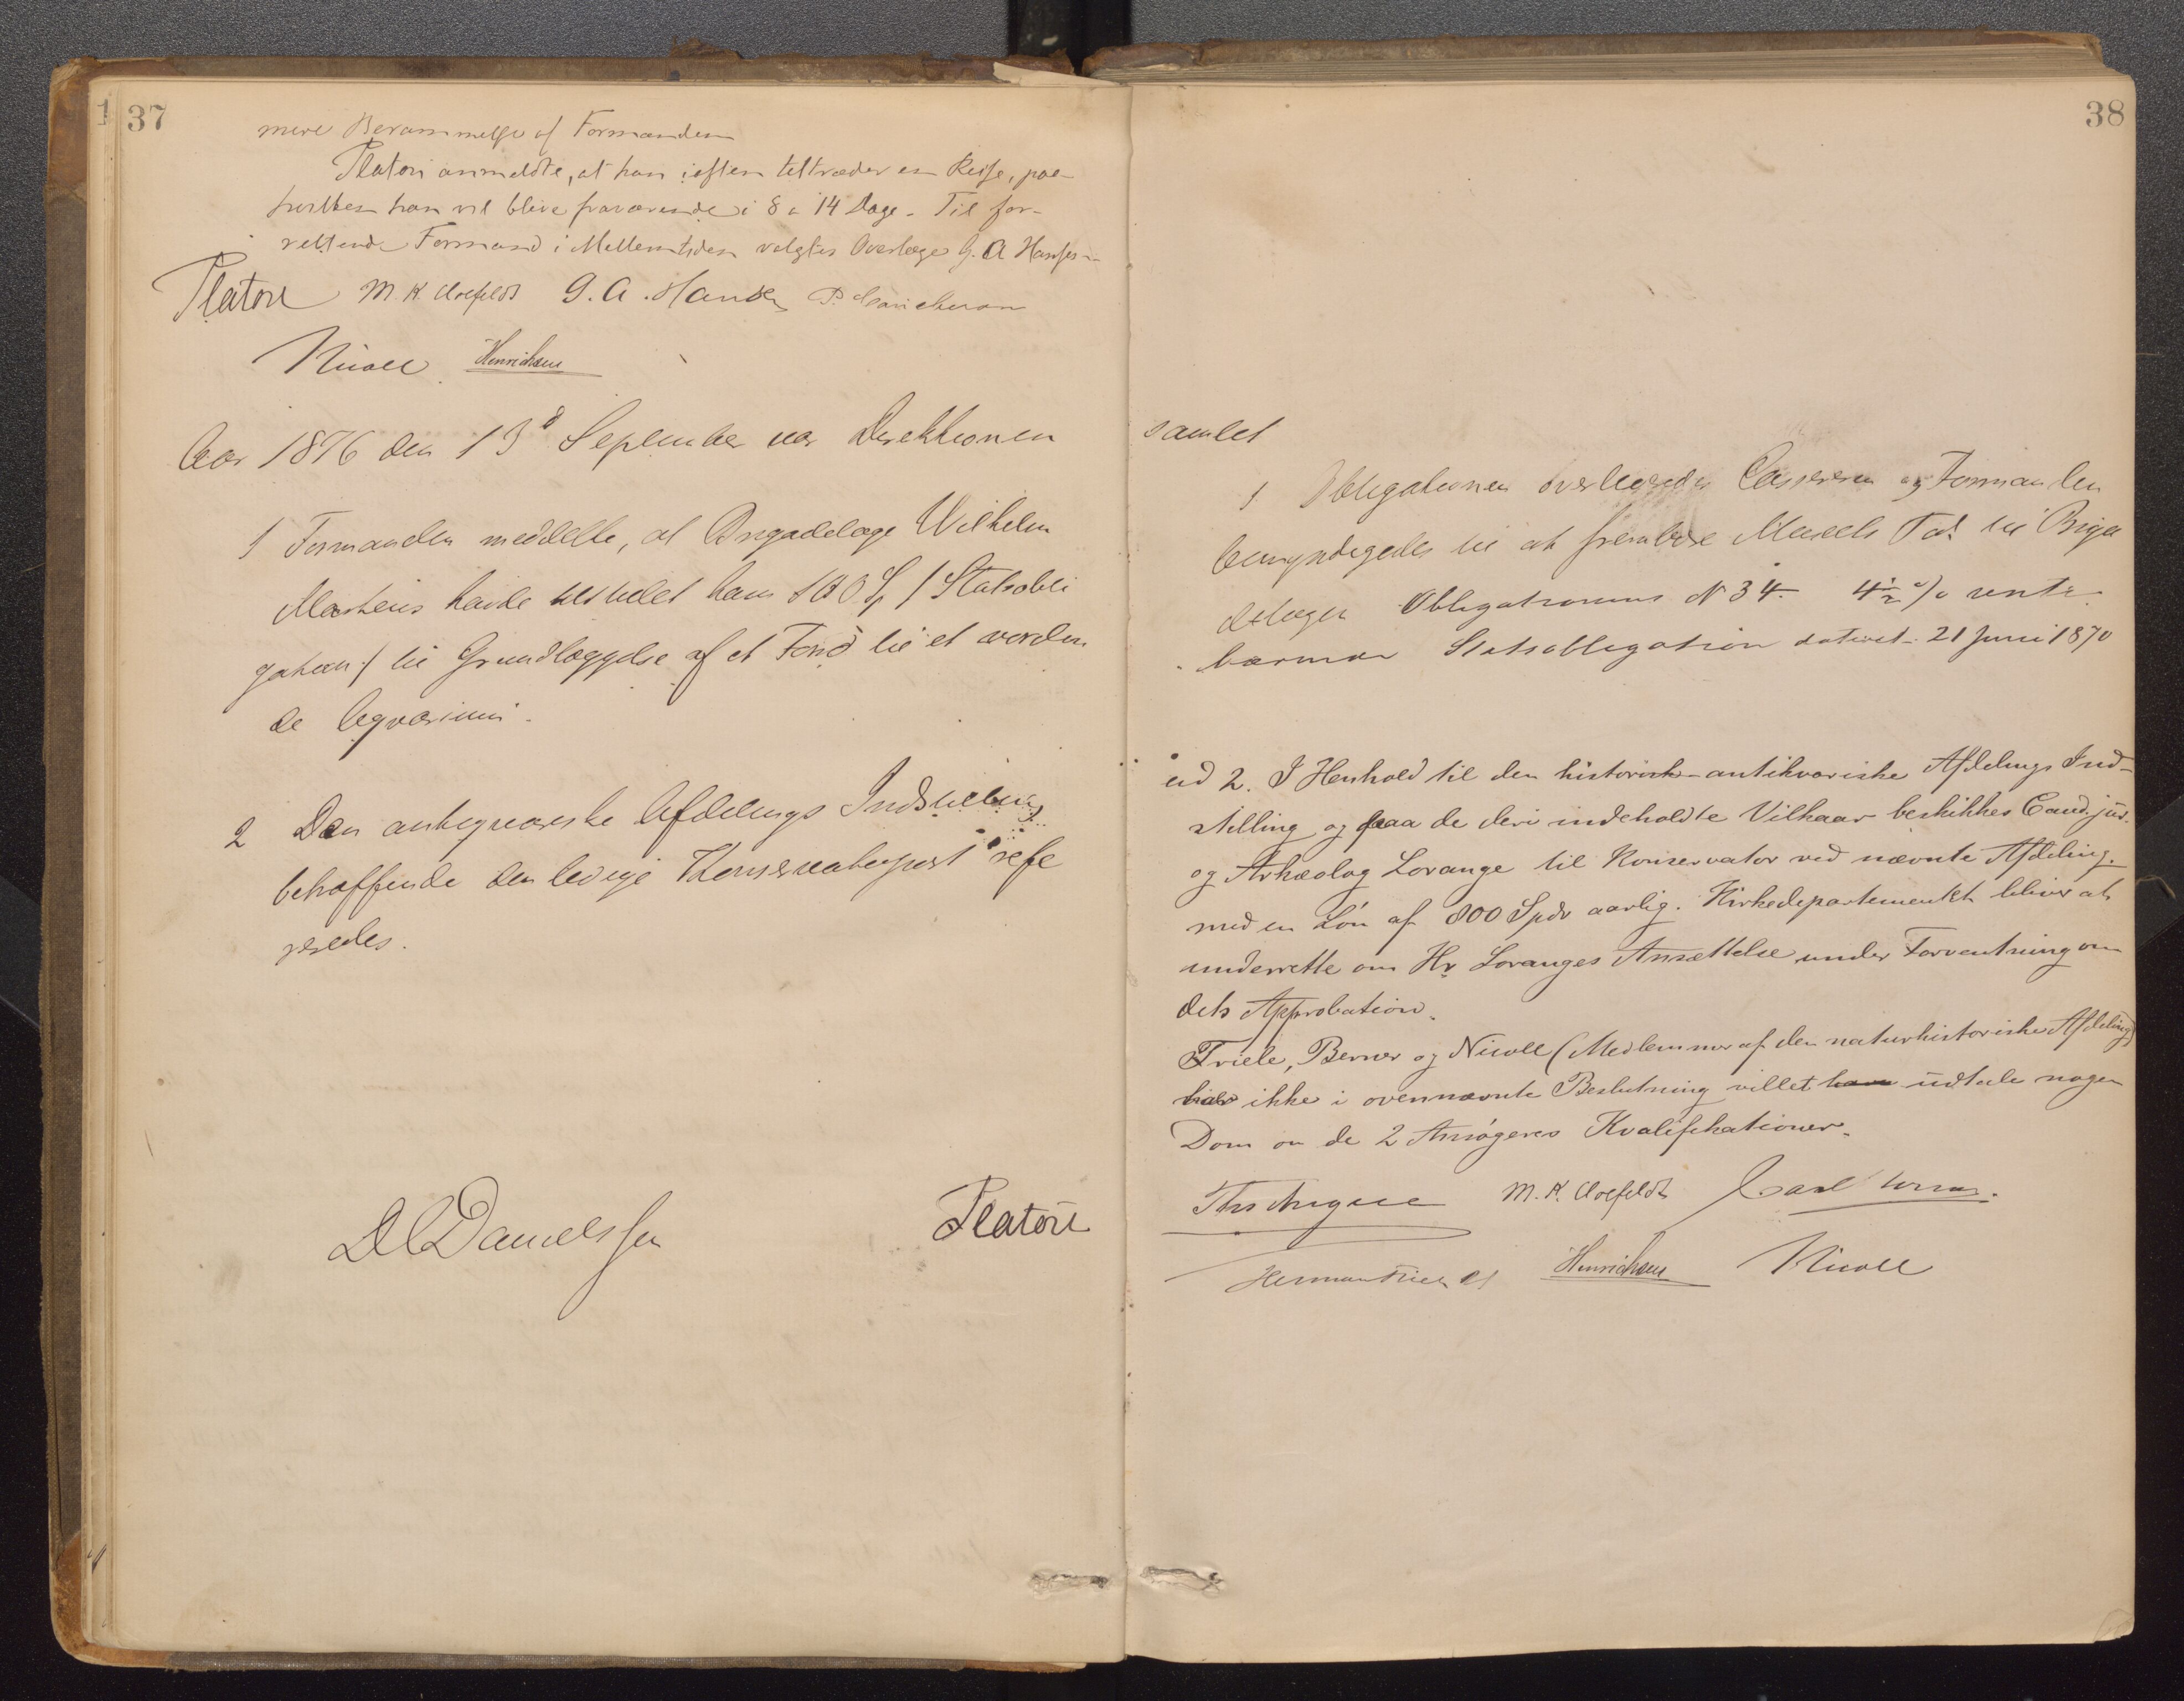 1 37
mere Berammelse af Formanden
Platou anmeldte, at han iaften tiltræder en Reise, paa
hvilken han vil blive fraværende i 8 a 14 Dage. Til for-
rettende Formand i Mellemtiden valgtes Overlæge G. A Hansen
Platou M. K. G. A. Hansen P.
Nicoll Henrichsen
Aar 1876 den 13d September var Direktionen
1 Formanden meddelte, at Brigadelæge Wilhelm
Martens havde tilstillet ham 100 Sp / Statsobli
gation / til Grundlæggelse af et Fond til et vorden
de Aqvarium.
2 Den antiqvariske Afdelings Indstilling
betræffende den ledige Konservatorpost refe
reredes.
DCDanielssen Platou
38
samlet
1 Obligationen overleveredes Cassereren og Formanden
bemyndigedes til at frembære Museets Tak til Briga
delægen Obligationens N 34. 4½ % rente
bærende Statsobligation dateret 21 Juni 1870
ad 2. I Henhold til den historisk-antikvariske Afdelings Ind-
stilling og paa de deri indeholdte Vilkaar beskikkes Cand. jur.
og Arkæolog Lorange til Konservator ved nævnte Afdeling
med en Løn af 800 Spdr aarlig. Kirkedepartementet bliver at
underrette om Hr Loranges Ansættelse under Forventning om
dets Approbation.
Friele, Berner og Nicoll (Medlemmer af den naturhistoriske Afdeling)
har ikke i ovennævnte Beslutning villet have udtale nogen
Dom om de 2 Ansøgeres Kvalifikationer.
M. K. Carl
Herman Friele Henrichsen Nicoll